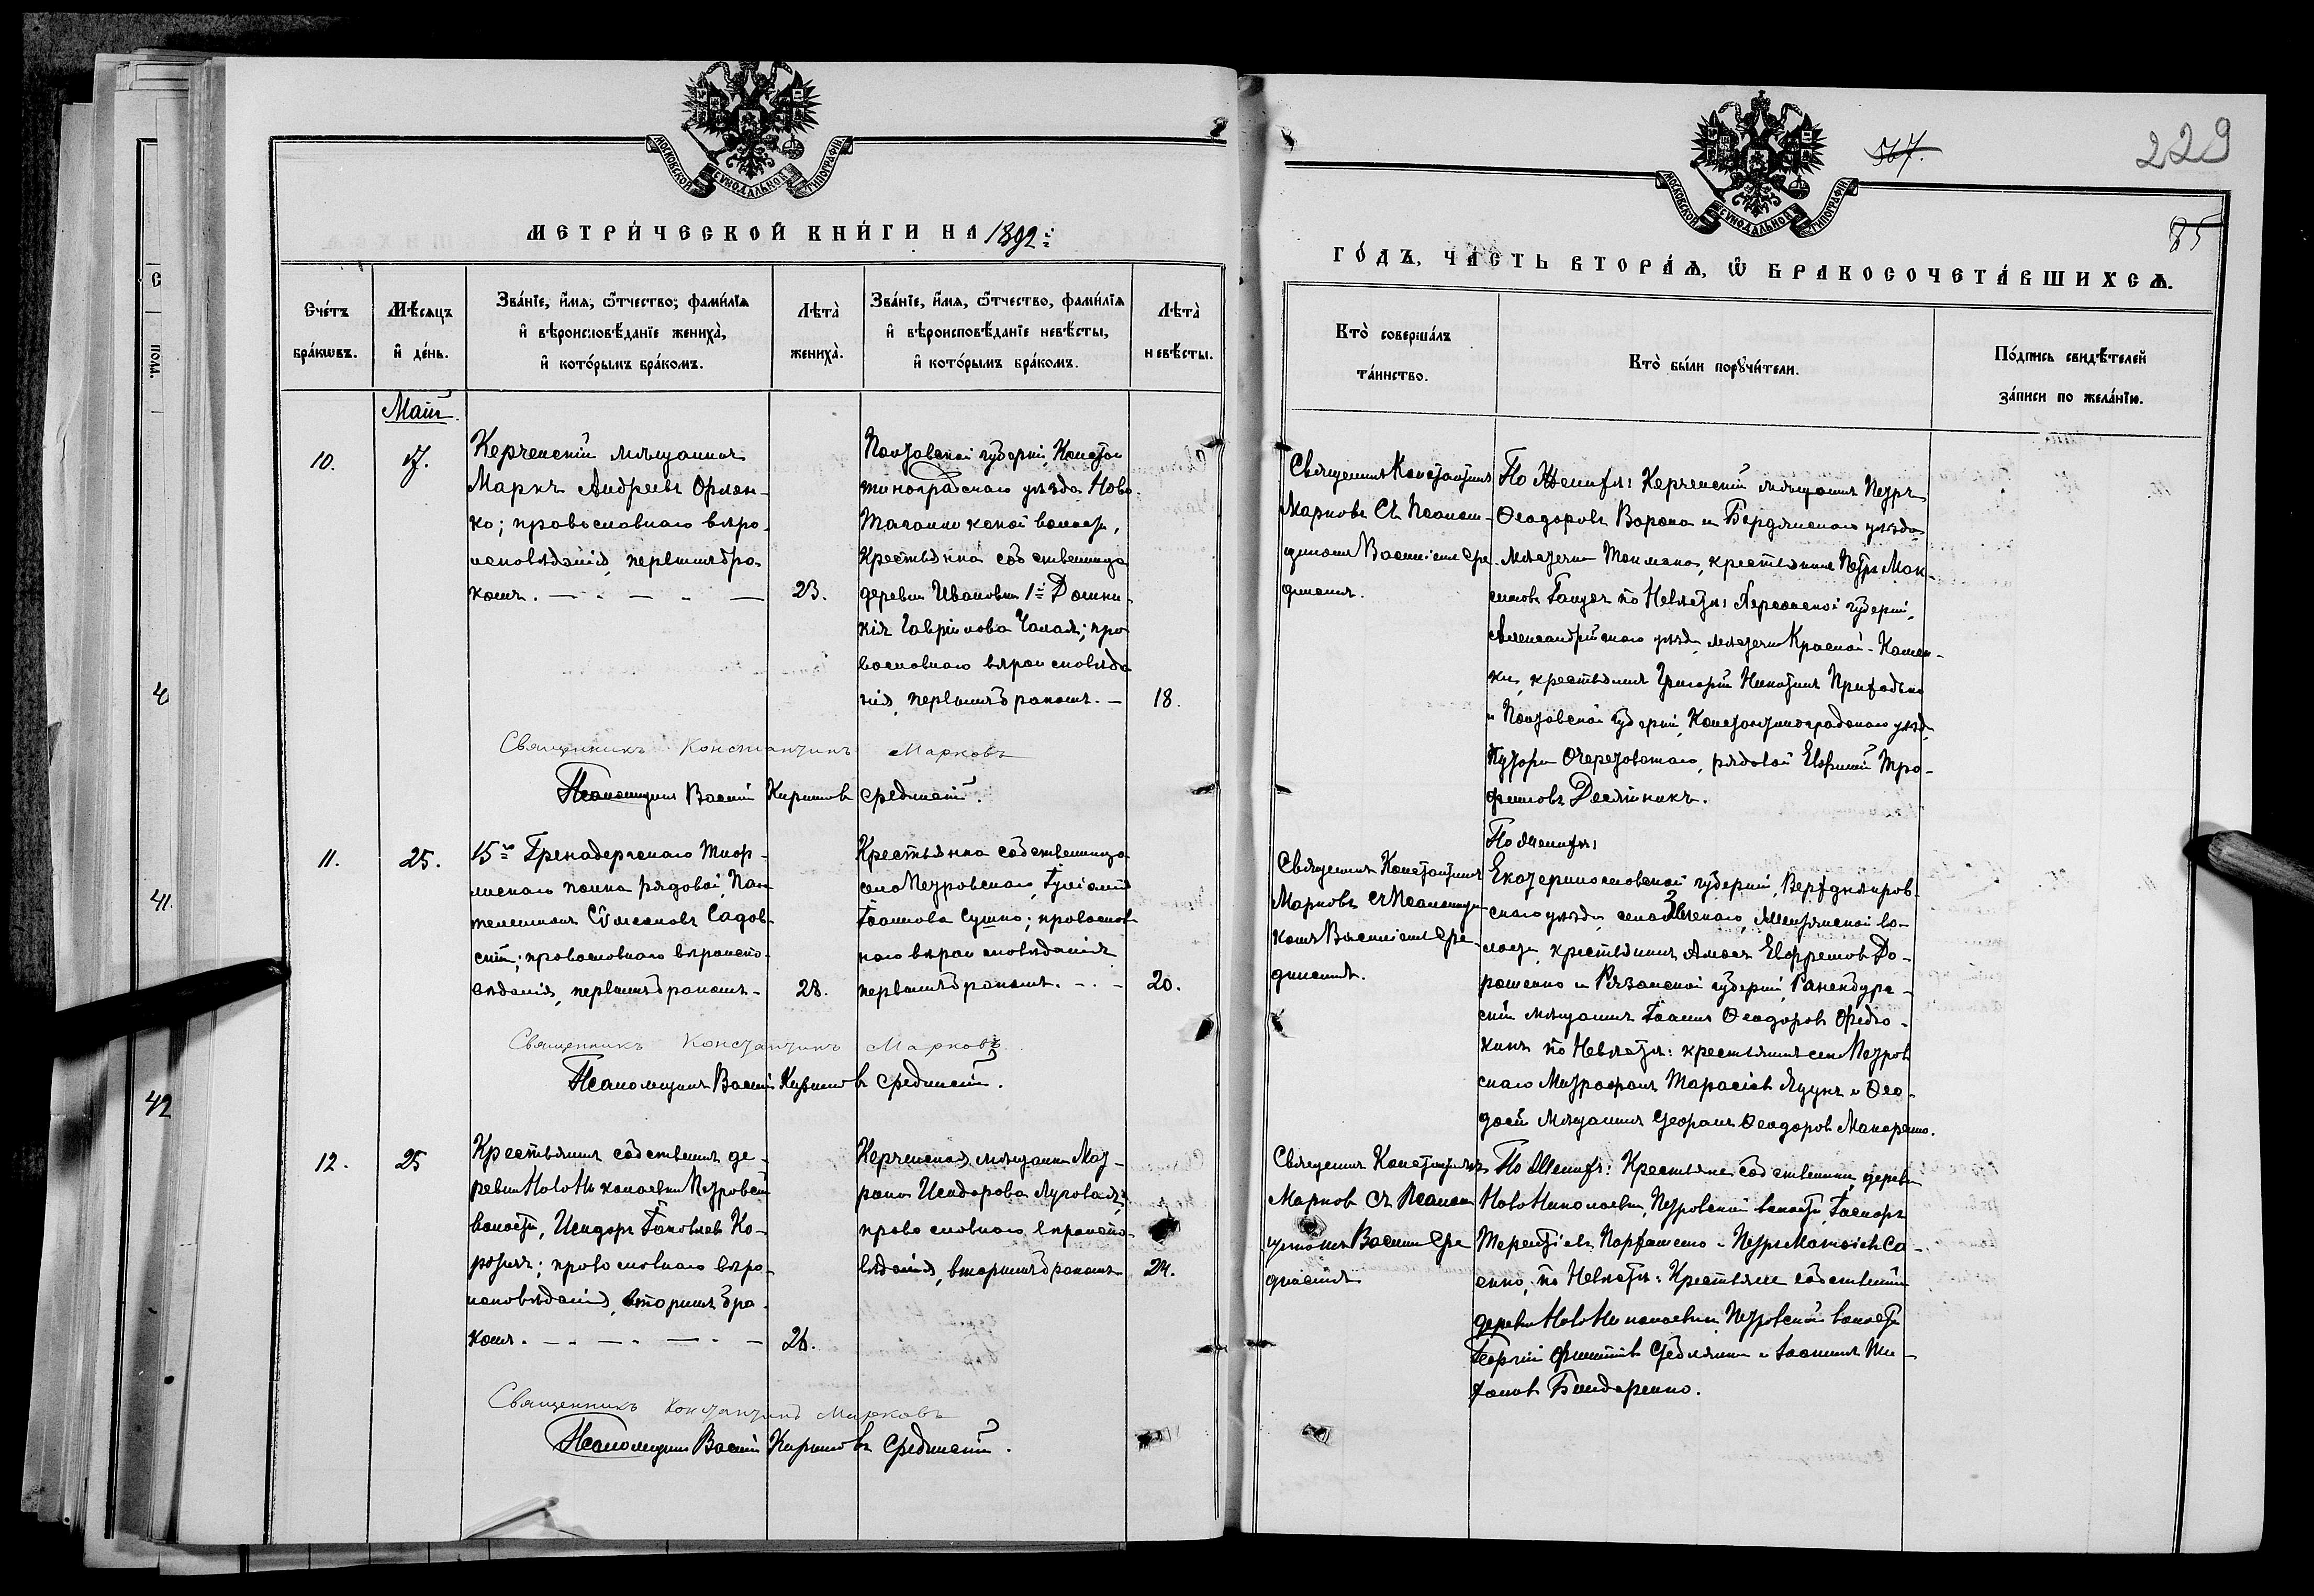 МОСКОВСКОЙ СѴНОДАЛЬНОЙ ТИПОГРАФІИ
МЕТРИ́ЧЕСКОЙ КНИ́ГИ НА 1892:
Сче́тъ бра́кωвъ.
Мѣ́сяцъ и҆ де́нь.
Зва́нїе, и҆́мя, ѻ҆́тчество, фами́лїя и҆ вѣроисповѣ́данїе жениха̀, и҆ кото́рымъ бра́комъ.
Лѣта̀ жениха̀.
Зва́нїе, и҆́мя, ѻ҆́тчество, фами́лїя и҆ вѣроисповѣ́данїе невѣ́сты, и҆ кото́рымъ бра́комъ.
Лѣта̀ невѣ́сты.
Май.
10.
17.
Керченскій мѣщанинъ
Маркъ Андреевъ Орлен-
ко; православнаго вѣро-
исповѣданія, первымъ бра-
комъ.
23.
Полтавской губерніи, Констан
тиноградскаго уѣзда Ново-
Крестьянка собственница
деревни Ивановки 1й Домни-
кія Гавріилова Чалая; пра
вославнаго вѣроисповѣда
нія, первымъ бракомъ.
18.
Священникъ Константинъ Марковъ
Псаломщикъ Василій Кирилловъ Срединскій.
11.
25.
15го Гренадерскаго Тифл-
лискаго полка рядовой, Пан
телеимонъ Садов-
скій; православнаго вѣроиспо-
вѣданія, первымъ бракомъ
28.
Крестьянка собственница
села Петровскаго, Гликерія
Іоаннова Сушко; православ
наго вѣроисповѣданія
первымъ бракомъ.
20.
Священникъ Константинъ Марковъ
Псаломщикъ Василій Кирилловъ Срединскій.
12.
25
Крестьянинъ собственникъ де-
ревни Ново Николаевки Петровской
волости, Исидоръ Іаковлевъ Ко-
; православнаго вѣро-
исповѣданія, вторымъ бра-
комъ.
26.
Керченская мѣщанка Мат-
рона Исидорова Луговая;
православнаго вѣроиспо-
вѣданія, вторымъ бракомъ
24.
Священникъ Константинъ Марковъ
Псаломщикъ Василій Кирилловъ Срединскій.
МОСКОВСКОЙ СѴНОДАЛЬНОЙ ТИПОГРАФІИ
567.
229
85
ГО́ДЪ, ЧА́СТЬ ВТОРА́Я, Ѽ БРАКОСОЧЕТА́ВШИХСЯ.
Кто̀ соверша́лъ та́инство.
Кто̀ бы́ли порꙋчи́тели.
По́дпись свидѣ́телей за́писи по жела́нїю.
Священникъ Константинъ
Марковъ съ Псалом-
щикомъ Василіемъ Сре-
динскимъ.
По Женихѣ: Керченскій мѣщанинъ Петръ
Ѳеодоровъ Ворона и Бердянскаго уѣзда
мѣстечка Токмака, крестьянинъ Петръ Мак-
симовъ по Невѣстѣ: Херсонской губерніи,
Александрійскаго уѣзда, мѣстечка Красной-Камен-
ки, крестьянинъ Григорій Никитинъ Приходько
и Полтавской губерніи, Константиноградскаго уѣзд.
Хутора Очеретоватаго, рядовой Евфимій Тро-
фимовъ Десятникъ.
Священникъ Константинъ
Марковъ съ Псаломщи-
комъ Василіемъ Сре-
динскимъ.
По Женихѣ:
Екатеринославской губерніи, Верхднѣпров-
скаго уѣзда, села во-
лости, крестьянинъ Амосъ Евфремовъ До-
рошенко и Рязанской губерніи, Раненбург-
скій мѣщанинъ Іоаннъ Ѳеодоровъ Ѳедо-
кинъ по Невѣстѣ: крестьянинъ села Петров
скаго Митрофанъ Тарасіевъ Яцунъ и Ѳео-
досій мѣщанинъ Ѳеодоровъ Макаренко.
Священникъ Константинъ
Марковъ съ Псалом
щикомъ Василіемъ Сре
динскимъ
По Женихѣ: Крестьяне собственники, деревни
Ново Николаевки, Петровской волости,
Терентіевъ Пархоменко и Петръ Са-
енко; по Невѣстѣ: Крестьяне собственники
деревни Ново Николаевки Петровской волости
Георгій Филипповъ и Іоаннъ Ти-
хоновъ Бондаренко.
С
ПОЛМ.
40
41.
42